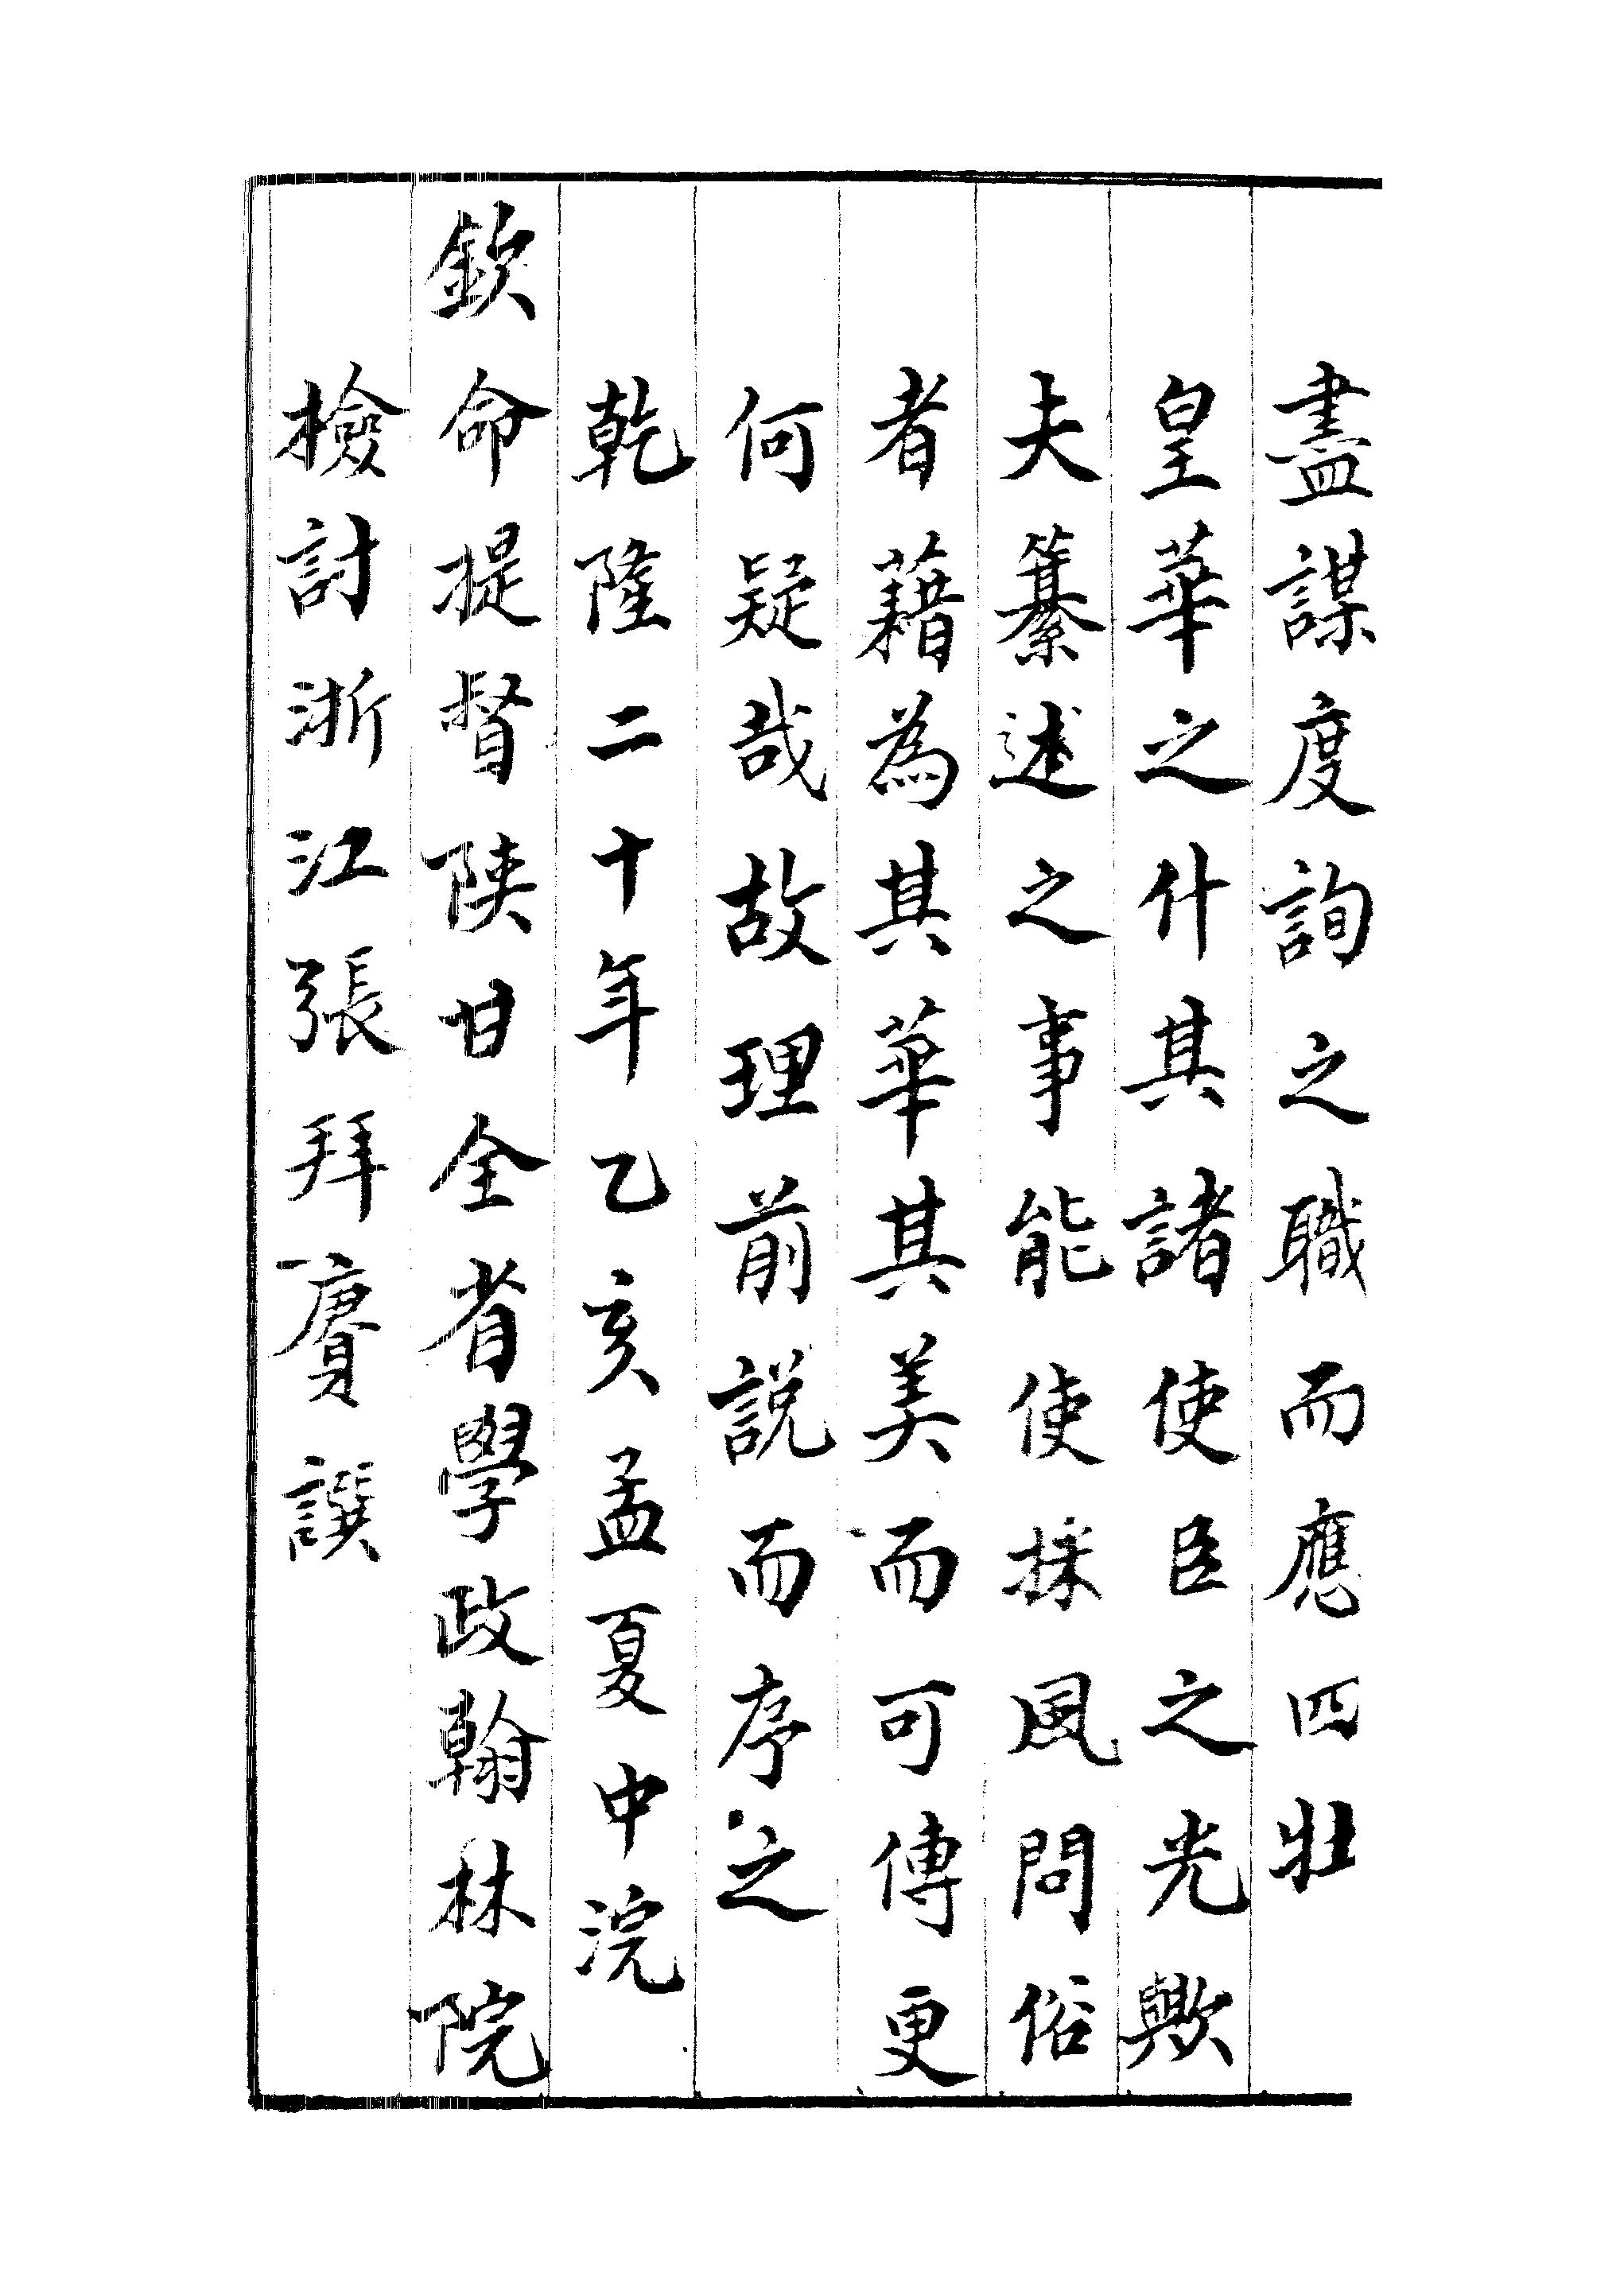 盡謀度詢之職而應四壯
皇華之什其諸使臣之光歟
夫纂述之事能使採風問俗
者藉為其華其美而可傳更
何疑哉故理前說而序之
乾隆二十年乙亥孟夏中浣
欽命提督陝甘全省學政翰林院
檢討浙江張拜賡譔